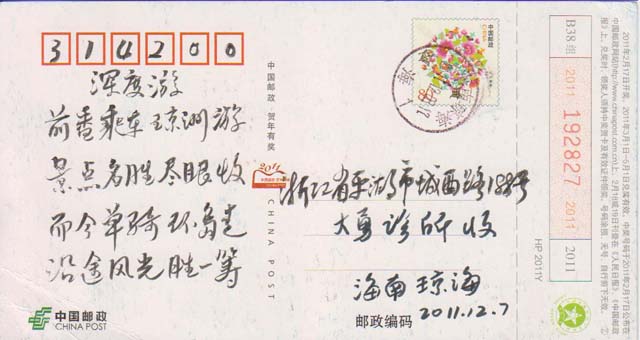 314200
深度游
前番乘车琼洲游
景点名胜尽眼收
而今单骑环岛走
沿途风光胜一筹
中国邮政
CHINA POST
中国邮政 贺年有奖
2011
CHINA POST
中国邮政
浙江省平湖市城西路188号
大勇诊所收
海南琼海
2011.12.7
邮政编码
HP 2011Y
B38组
2011
192827
2011
2011